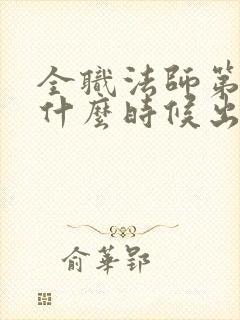 全職法師第
什麼時候出
俞華郢